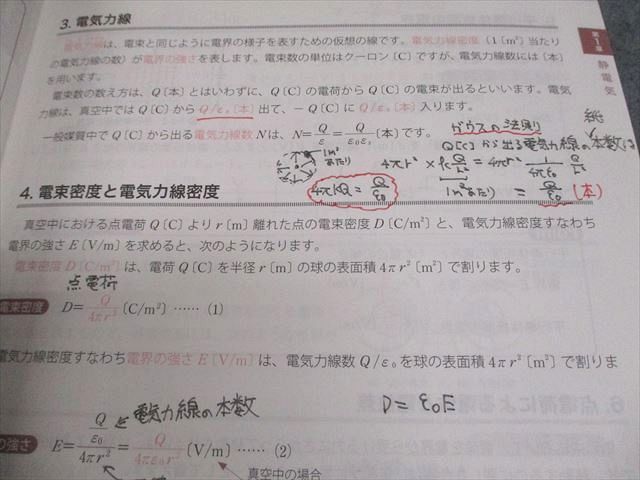 3. 電気力線
電気力線は、電束と同じように電界の様子を表すための仮想の線です。電気力線密度（1〔m²〕当たり
の電気力線の数）が電界の強さを表します。電束数の単位はクーロン〔C〕ですが、電気力線数には〔本〕
を用います。
電束数の数え方は、Q〔本〕とはいわずに、Q〔C〕の電荷からQ〔C〕の電束が出るといいます。電気
力線は、真空中ではQ〔C〕からQ/ε₀〔本〕出て、－Q〔C〕にQ/ε₀〔本〕入ります。
一般媒質中でQ〔C〕から出る電気力線数Nは、N=Q/ε=Q/ε₀εs〔本〕です。
ガウスの法則
Q[C]から出る電気力線の本数は
1m²あたり
4πr² × k Q/r² = 4πr² · 1/4πε₀ · Q/r²
4πkQ = Q/ε₀
1m²あたり
= Q/ε₀ [本]
4. 電束密度と電気力線密度
真空中における点電荷Q〔C〕よりr〔m〕離れた点の電束密度D〔C/m²〕と、電気力線密度すなわち
電界の強さE〔V/m〕を求めると、次のようになります。
電束密度D〔C/m²〕は、電荷Q〔C〕を半径r〔m〕の球の表面積4πr²〔m²〕で割ります。
点電荷
電束密度 D=Q/4πr²〔C/m²〕……（1）
電気力線密度すなわち電界の強さE〔V/m〕は、電気力線数Q/ε₀を球の表面積4πr²〔m²〕で割りま
電気力線の本数
D = ε₀E
の強さ E=Q/ε₀/4πr²=Q/4πε₀r²〔V/m〕……（2）
真空中の場合
第1章
静電気